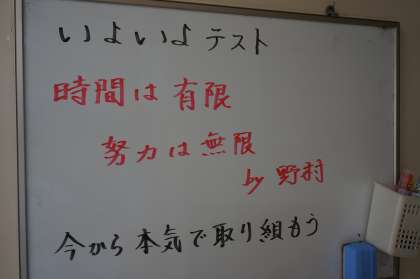 いよいよテスト
時間は有限
努力は無限
by 野村
今から本気で取り組もう